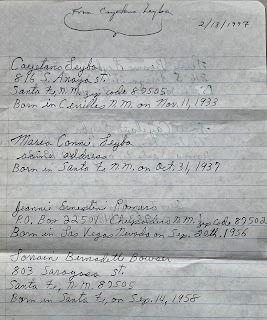 From Cayetano Leyba
2/13/1997
Cayetano Leyba
816 S. Anaya St.
Santa Fe, N.M. zip code 87505
Born in Cerrillos N.M. on Nov. 11, 1933
Maria Leyba
same address
Born in Santa Fe N.M. on Oct. 31, 1937
Jeannie Ernestine Romero
P.O. Box 22501 N.M. zip code 87502
Born in Las Vegas Nevada on Sep. 20th, 1956
Bernadette
803 St.
Santa Fe, N.M. 87505
Born in Santa Fe, on Sep. 14, 1958